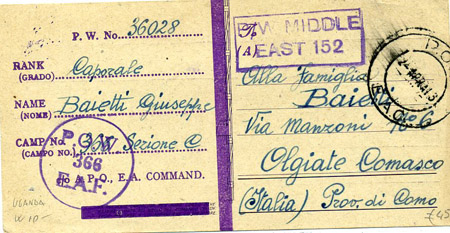 P. W. No. 36028
RANK
(GRADO) Caporale
NAME
(NOME) Baietti Giuseppe
CAMP No.
(CAMPO NO.) 366 Sezione C
E.A.P.O., E.A. COMMAND.
P.O.W.
366
E.A.F.
UGANDA
P/W MIDDLE
(A) EAST 152
Alla Famiglia
Baietti
Via Manzoni No 6
Olgiate Comasco
(Italia) Prov. di Como
£45